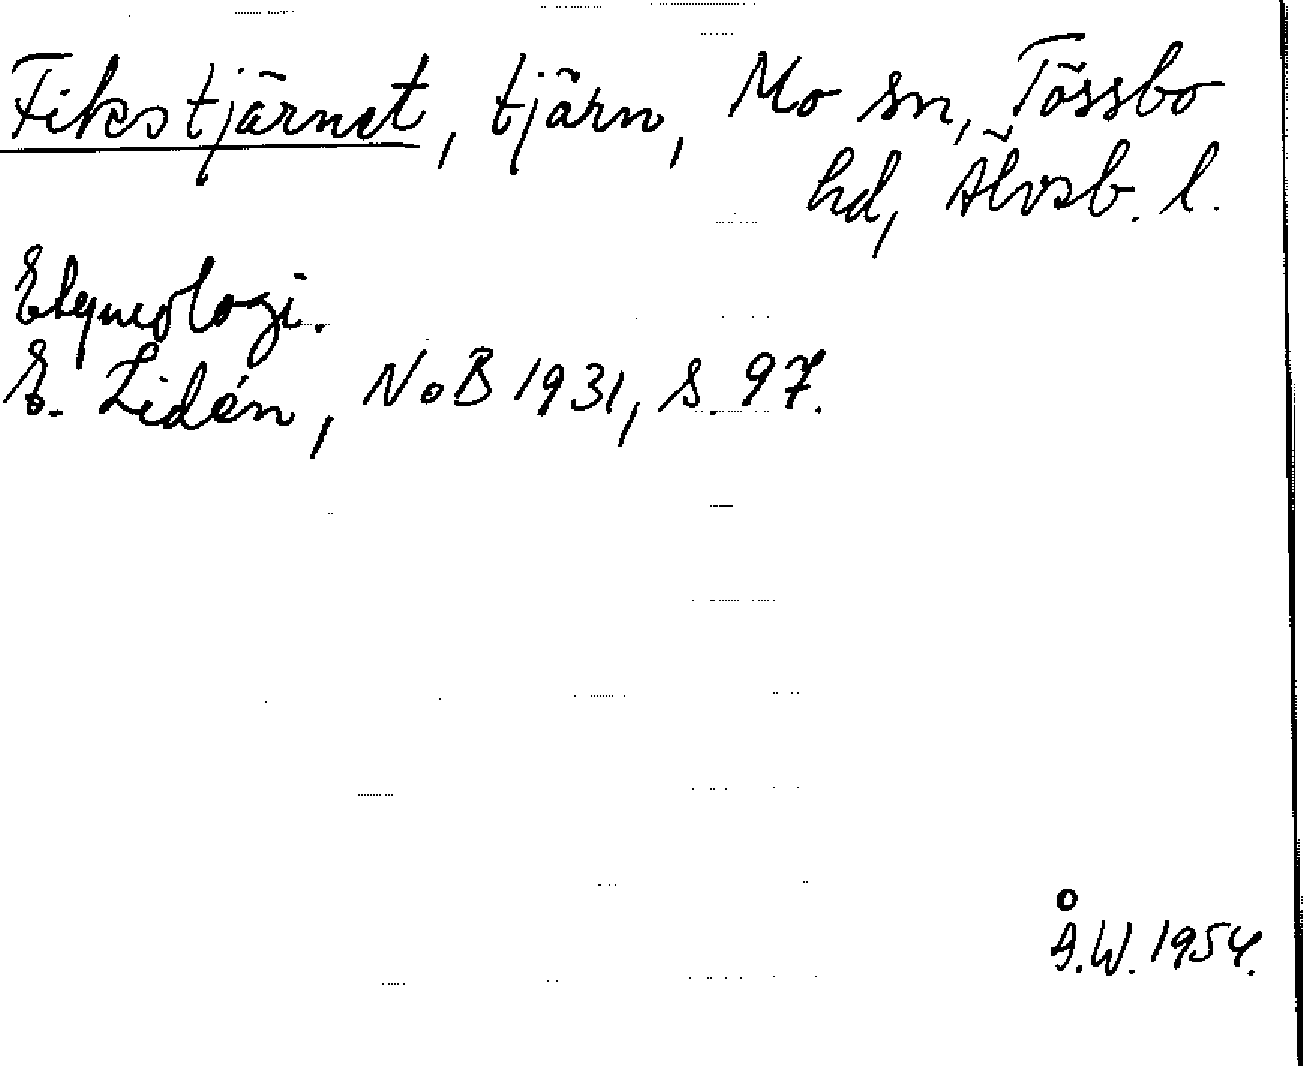 Fikstjärnet, tjärn, Mo sn, Tössbo
hd, Älvsb. l.
Etymologi.
E. Lidén, NoB 1931, s. 97.
Å.W. 1954.